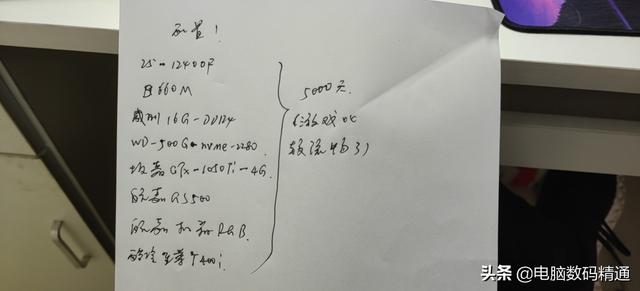 配置！
i5-12400F
B660M
威刚16G-DDR4
WD-500G-nvme-2280
GTX-1050Ti-4G
航嘉GS500
航嘉 RGB
酷冷至尊T400i
5000元
(游戏比
较流畅)
头条 @电脑数码精通